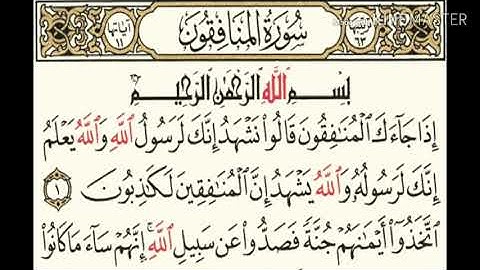 سُورَةُ المُنَافِقُونَ
آياتها ١١
٦٣
MASTER
بِسْمِ ٱللَّهِ ٱلرَّحْمَٰنِ ٱلرَّحِيمِ
إِذَا جَآءَكَ ٱلْمُنَٰفِقُونَ قَالُوا۟ نَشْهَدُ إِنَّكَ لَرَسُولُ ٱللَّهِ وَٱللَّهُ يَعْلَمُ
إِنَّكَ لَرَسُولُهُۥ وَٱللَّهُ يَشْهَدُ إِنَّ ٱلْمُنَٰفِقِينَ لَكَٰذِبُونَ ١
ٱتَّخَذُوٓا۟ أَيْمَٰنَهُمْ جُنَّةً فَصَدُّوا۟ عَن سَبِيلِ ٱللَّهِ ۚ إِنَّهُمْ سَآءَ مَا كَانُوا۟